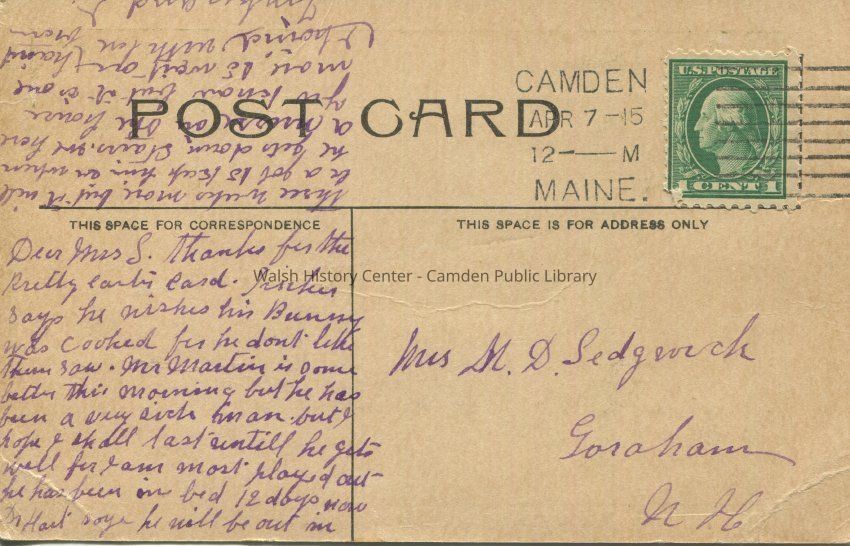 POST CARD
CAMDEN
APR 7 -15
12 — M
MAINE.
U.S. POSTAGE
1 CENT 1
THIS SPACE FOR CORRESPONDENCE
THIS SPACE IS FOR ADDRESS ONLY
Dear Mrs S. Thanks for the
Pretty easter card.
says he wishes his Bunny
was cooked for he dont like
them raw. Mr Martin is some
better this morning but he has
been a very sick man. but I
hope I shall last untill he gets
well for I am most played out
he has been in bed 12 days now
Dr Hart says he will be out in
three weeks more, but it will
be a job to keep him in when
he gets down stairs. we have
a nurse in the house
you know but it is one
more to wait on
with
and
Mrs M. D. Sedgwick
Goraham
N H
Walsh History Center - Camden Public Library